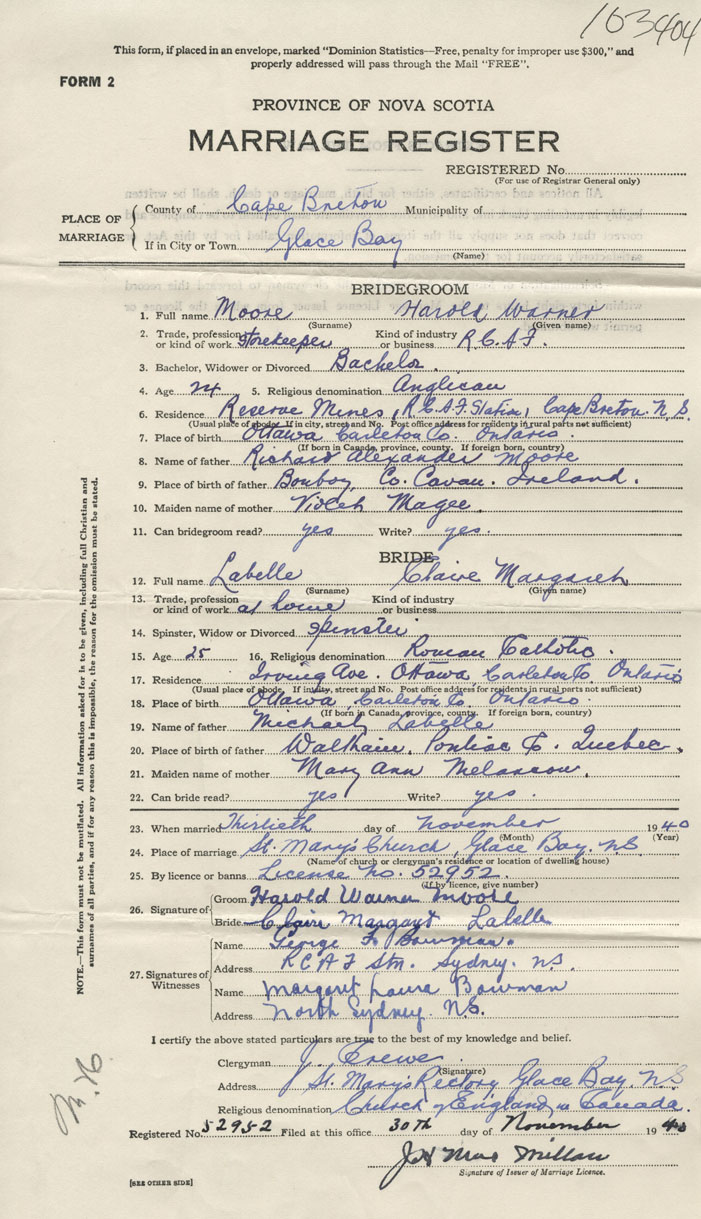 103404
This form, if placed in an envelope, marked "Dominion Statistics—Free, penalty for improper use $300," and
properly addressed will pass through the Mail "FREE".
FORM 2
PROVINCE OF NOVA SCOTIA
MARRIAGE REGISTER
REGISTERED No.
(For use of Registrar General only)
PLACE OF MARRIAGE
County of Cape Breton Municipality of
If in City or Town Glace Bay
(Name)
BRIDEGROOM
1. Full name Moore Harold Warner
(Surname) (Given name)
2. Trade, profession or kind of work storekeeper Kind of industry or business R.C.A.F.
3. Bachelor, Widower or Divorced Bachelor.
4. Age 24 5. Religious denomination Anglican
6. Residence Reserve Mines, R.C.A.F. Station, Cape Breton N.S.
(Usual place of abode. If in city, street and No. Post office address for residents in rural parts not sufficient)
7. Place of birth Ottawa Carleton Co. Ontario.
(If born in Canada, province, county. If foreign born, country)
8. Name of father Richard Alexander Moore
9. Place of birth of father Co. Cavan. Ireland.
10. Maiden name of mother Magee.
11. Can bridegroom read? yes Write? yes.
BRIDE
12. Full name Labelle Claire Margaret
(Surname) (Given name)
13. Trade, profession or kind of work at home Kind of industry or business
14. Spinster, Widow or Divorced spinster
15. Age 25 16. Religious denomination Roman Catholic.
17. Residence Irving Ave. Ottawa Carleton Co. Ontario
(Usual place of abode. If in city, street and No. Post office address for residents in rural parts not sufficient)
18. Place of birth Ottawa, Carleton Co. Ontario.
(If born in Canada, province, county. If foreign born, country)
19. Name of father Michael Labelle
20. Place of birth of father Pontiac Co. Quebec.
21. Maiden name of mother Mary Ann Melancon.
22. Can bride read? yes Write? yes.
23. When married Thirtieth day of November 1940
(Month) (Year)
24. Place of marriage St. Mary's Church, Glace Bay. N.S.
(Name of church or clergyman's residence or location of dwelling house)
25. By licence or banns License No. 52952.
(If by licence, give number)
26. Signature of
Groom Harold Warner Moore
Bride Claire Margaret Labelle
27. Signatures of Witnesses
Name George F. Bowman.
Address R C A F Stn. Sydney. N.S.
Name Margaret Laura Bowman
Address North Sydney. N.S.
I certify the above stated particulars are true to the best of my knowledge and belief.
Clergyman J. Crewe
(Signature)
Address St. Mary's Rectory Glace Bay. N.S
Religious denomination Church of England in Canada.
Registered No. 52952 Filed at this office 30th day of November 1940
J H Mac Millan
Signature of Issuer of Marriage Licence.
[SEE OTHER SIDE]
NOTE.—This form must not be mutilated. All information asked for is to be given, including full Christian and
surnames of all parties, and if for any reason this is impossible, the reason for the omission must be stated.